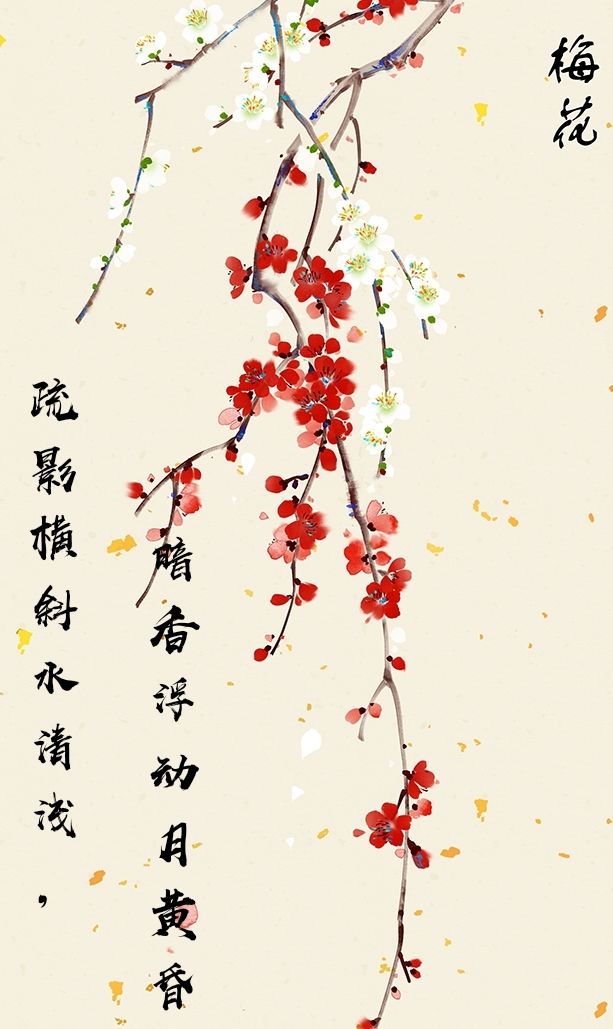 梅花
疏影横斜水清浅，
暗香浮动月黄昏